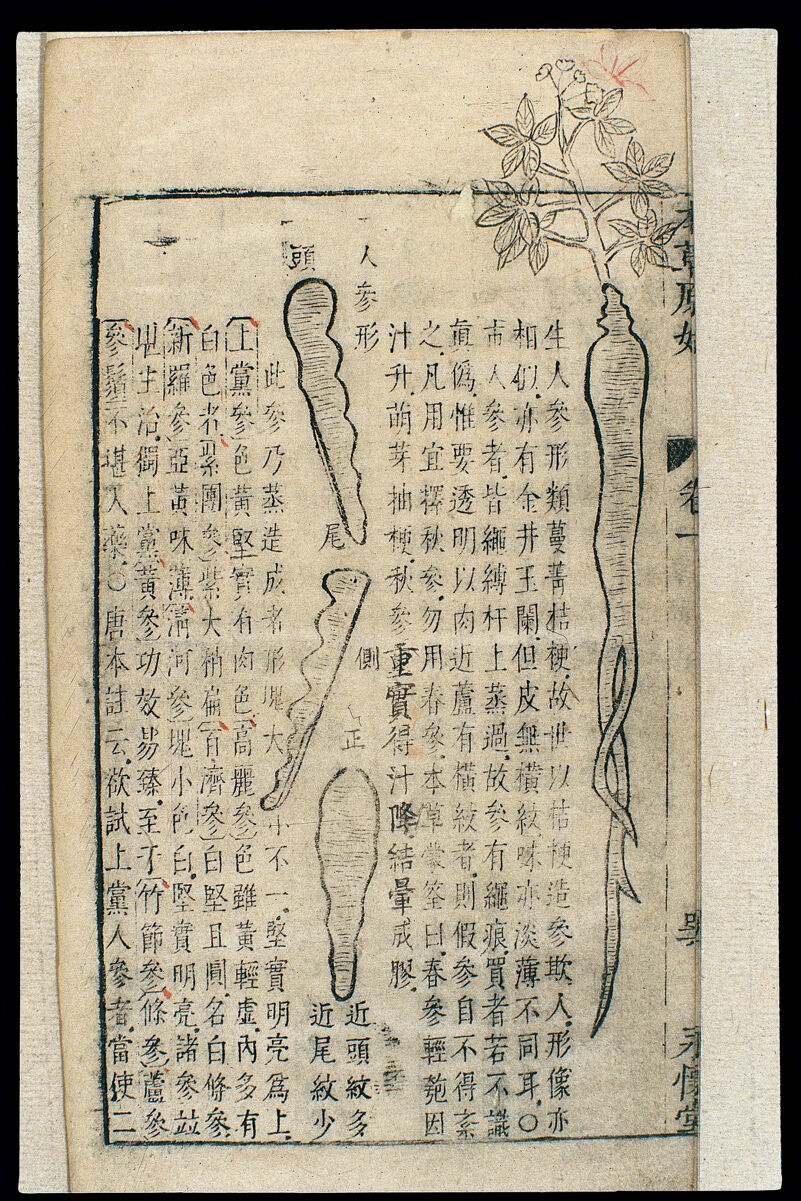 本草原始
卷一
永懷堂
生人參形類蔓菁桔梗故世以桔梗造參欺人形像亦
相似亦有金井玉闌但皮無橫紋味亦淡薄不同耳○
市人參者皆繩縛杆上蒸過故參有繩痕買者若不識
眞僞惟要透明以肉近蘆有橫紋者則假參自不得紊
之凡用宜擇秋參勿用春參本草蒙筌曰春參輕匏因
汁升萌芽抽梗秋參重實得汁降結暈成膠
人參形
頭
尾
側
正
近頭紋多
近尾紋少
此參乃蒸造成者形塊大小不一堅實明亮爲上
上黨參色黃堅實有肉色高麗參色雖黃輕虛內多有
白色者紫團參紫大稍扁百濟參白堅且圓名白條參
新羅參亞黃味薄淸河參塊小色白堅實明亮諸參竝
堪主治獨上黨黃參功效易臻至于竹節參條參蘆參
參鬚不堪入藥○唐本註云欲試上黨人參者當使二